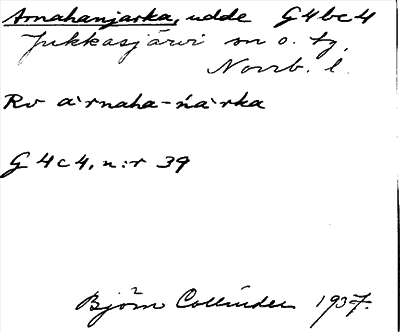 Arnahanjarka, udde G4bc4
Jukkasjärvi sn o. tg,
Norrb. l.
Rv a·rnaha-ńa·rka
G 4c4, n:r 39
Björn Collinder 1937.